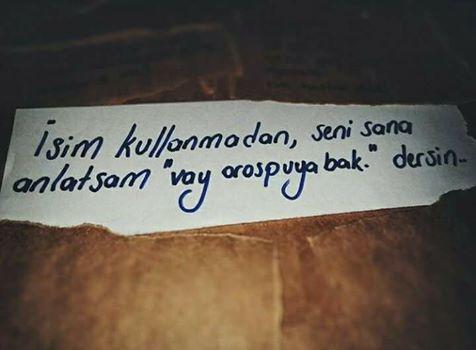 İsim kullanmadan, seni sana
anlatsam "vay orospuya bak." dersin..